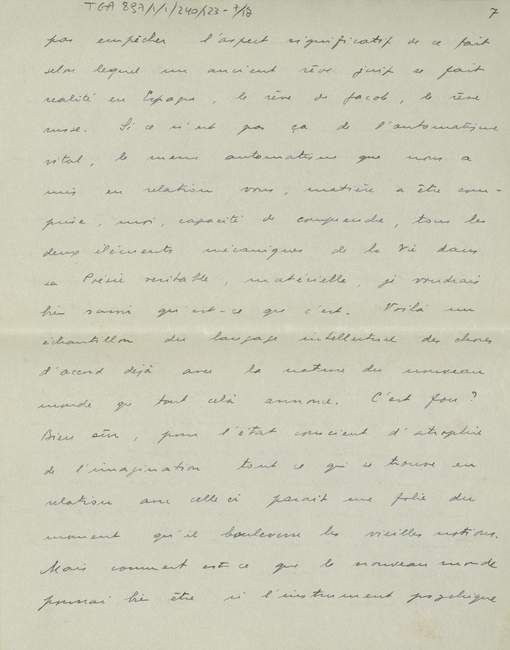 TGA 897/1/1/240/123-7/12
7
pas empêcher l'aspect significatif de ce fait
selon lequel un ancient rêve juif se fait
realité en Espagne, le rêve de Jacob, le rêve
russe. Si ce n'est pas ça de l'automatisme
vital, le meme automatisme que nous a
mis en relation vous, matière a être com-
prise, moi, capacité de comprendre, tous les
deux éléments mécaniques de la Vie dans
sa Poésie veritable, matérielle, je voudrais
bien savoir qui est-ce que c'est. Voilà un
échantillon du langage intellectrice des choses
d'accord dejà avec la nature du nouveau
monde que tout celà annonce. C'est fou?
Bien sûr, pour l'état conscient d'atrophie
de l'imagination tout ce qui se trouve en
relation avec celle ci parait une folie du
moment qu'il bouleverse les vieilles notions.
Mais comment est-ce que le nouveau monde
pourrai bien être si l'instrument psychique